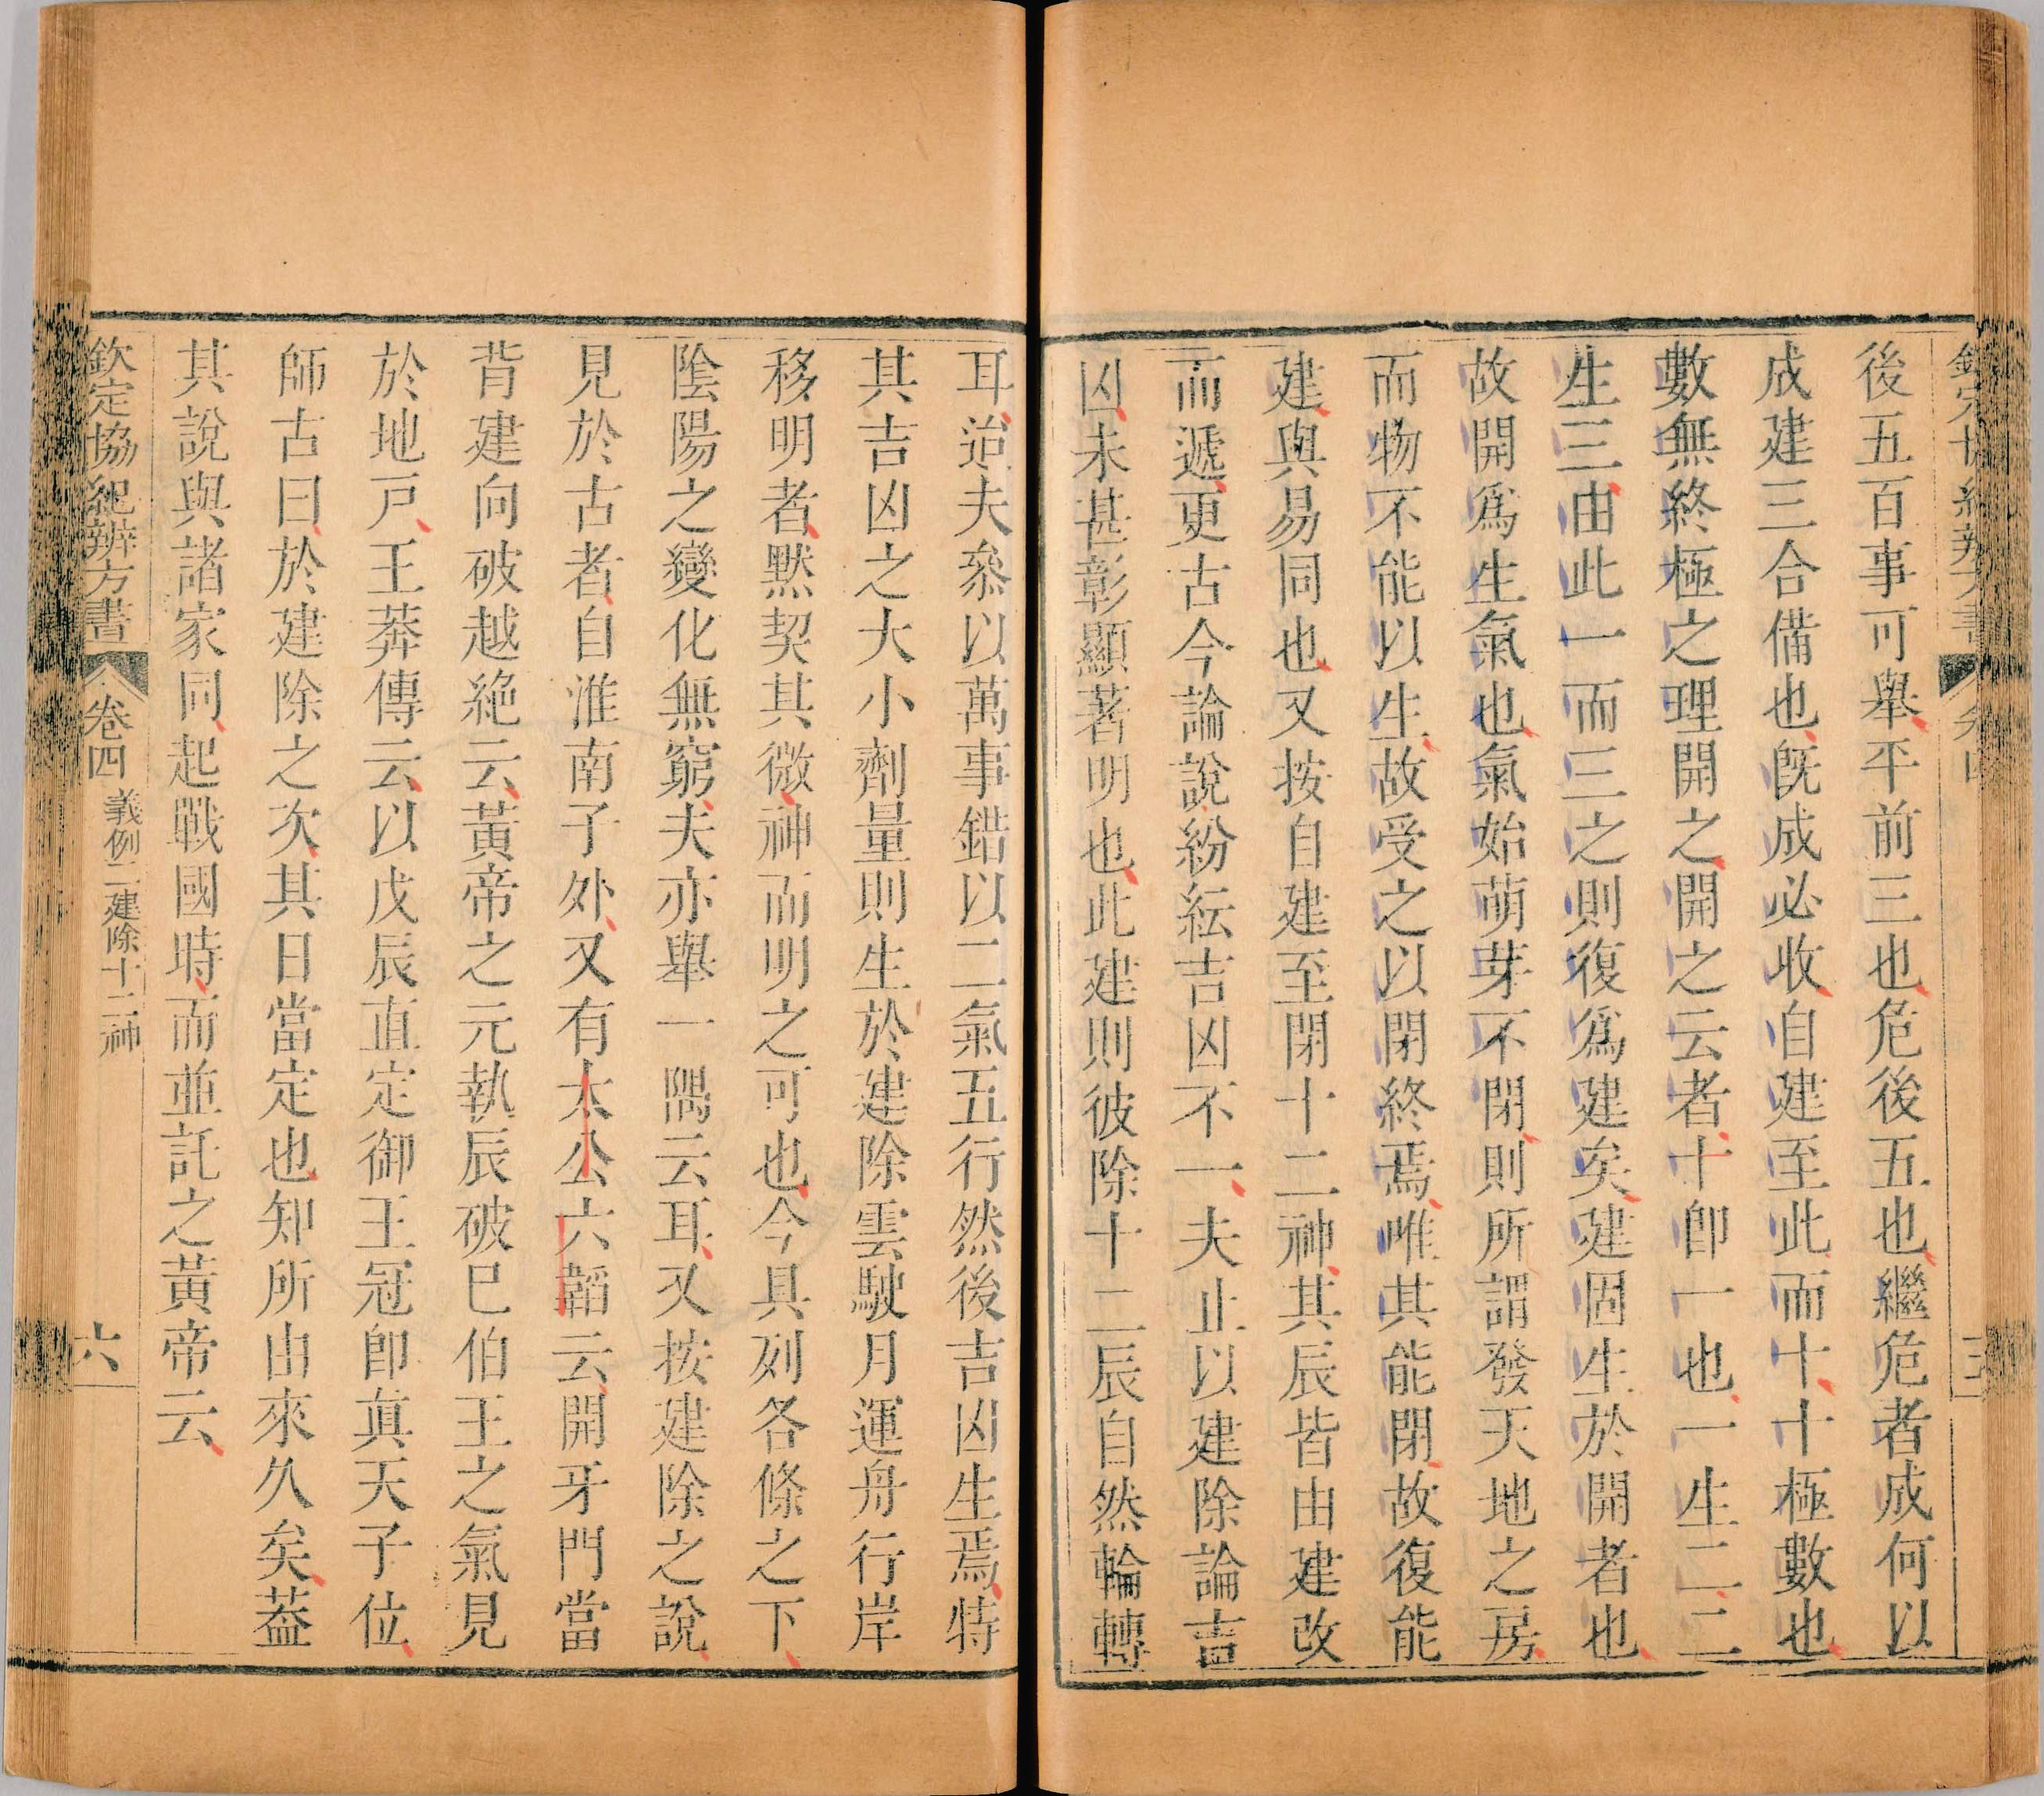 後五百事可舉平前三也危後五也繼危者成何以
成建三合備也旣成必收自建至此而十十極數也
數無終極之理開之開之云者十卽一也一生二二
生三由此一而三之則復爲建矣建固生於開者也
故開爲生氣也氣始萌芽不閉則所謂發天地之房
而物不能以生故受之以閉終焉唯其能閉故復能
建與易同也又按自建至閉十二神其辰皆由建改
而遞更古今論說紛紜吉凶不一夫止以建除論吉
凶未甚彰顯著明也此建則彼除十二辰自然輪轉
耳迨夫叅以萬事錯以二氣五行然後吉凶生焉特
其吉凶之大小劑量則生於建除雲駛月運舟行岸
移明者黙契其微神而明之可也今具列各條之下
陰陽之變化無窮夫亦舉一隅云耳又按建除之說
見於古者自淮南子外又有太公六韜云開牙門當
背建向破越絶云黃帝之元執辰破巳伯王之氣見
於地戸王莽傳云以戊辰直定御王冠卽眞天子位
師古曰於建除之次其日當定也知所由來久矣葢
其說與諸家同起戰國時而並託之黃帝云
欽定協紀辨方書 卷四 義例二建除十二神 六